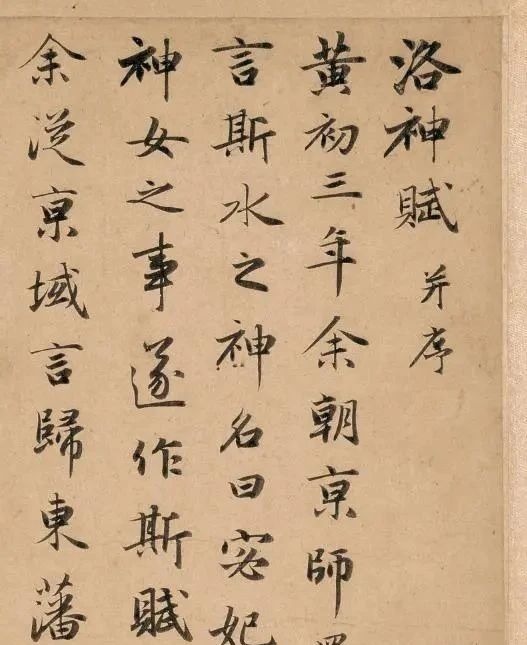 洛神賦 并序
黃初三年余朝京師
言斯水之神名曰宓妃
神女之事遂作斯賦
余從京域言歸東藩